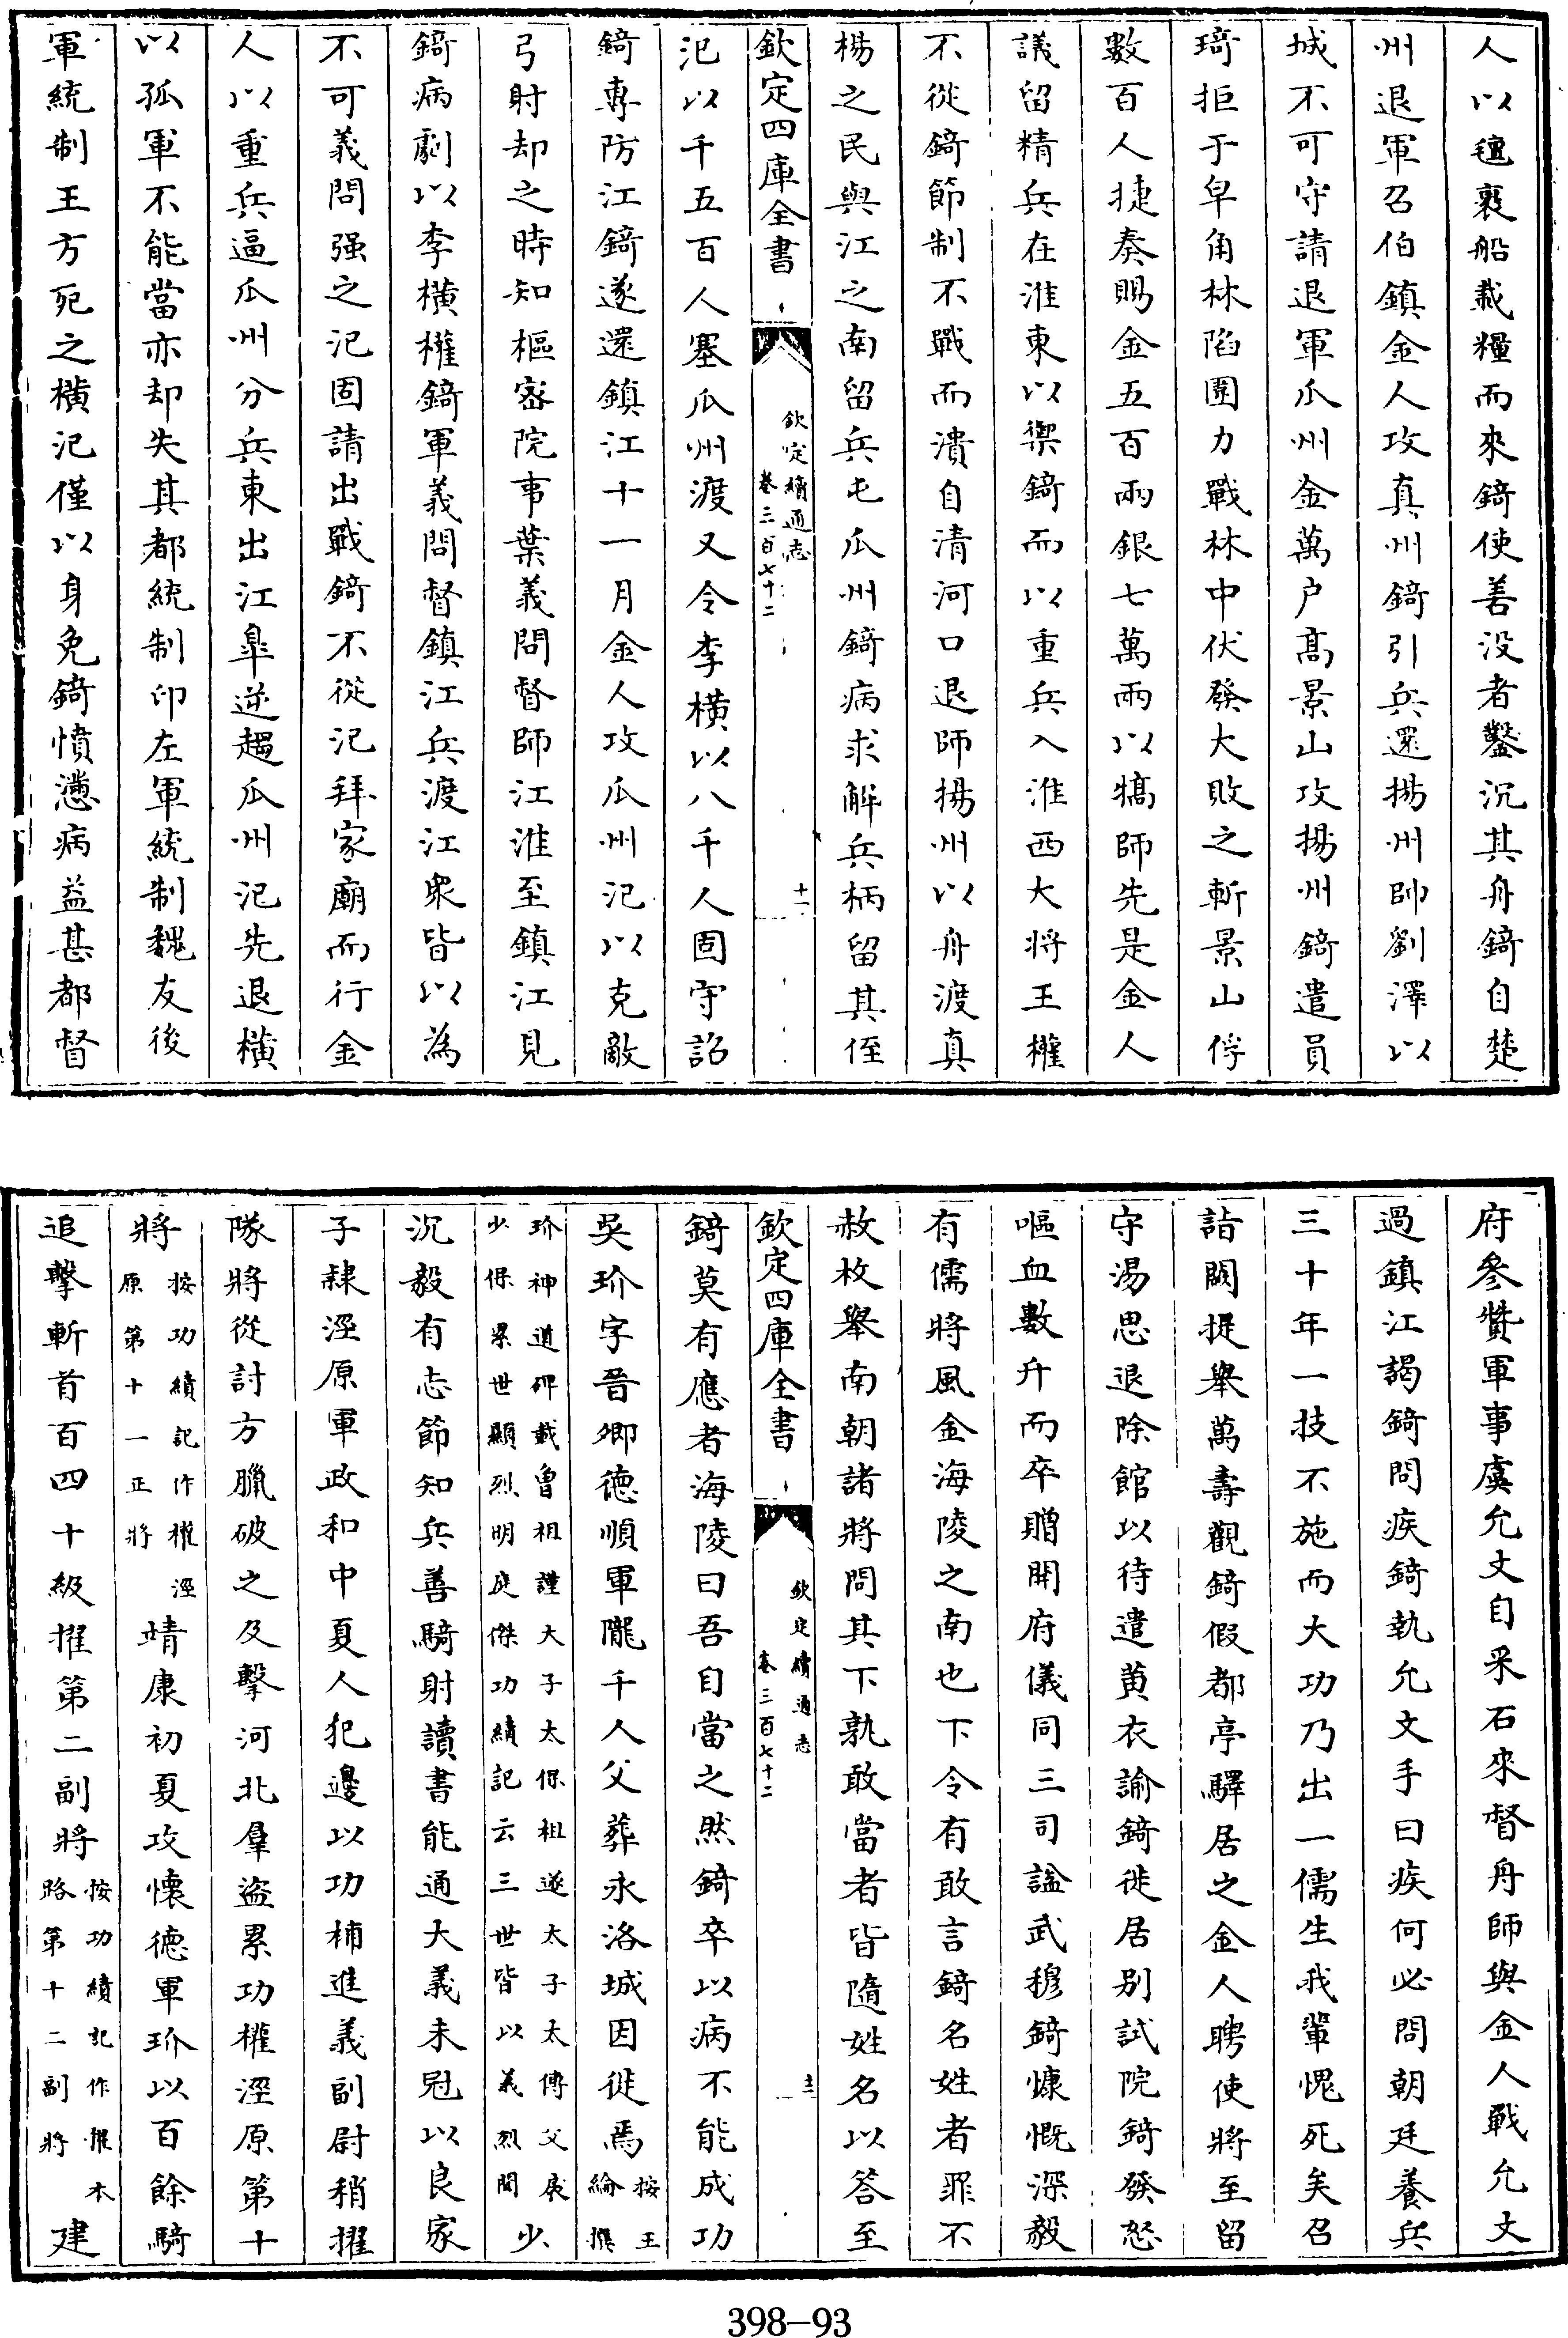 人以氊裹船載糧而來錡使善没者鑿沉其舟錡自楚
州退軍召伯鎮金人攻真州錡引兵還揚州帥劉澤以
城不可守請退軍瓜州金萬户髙景山攻揚州錡遣員
琦拒于皁角林陷圍力戰林中伏發大敗之斬景山俘
數百人捷奏賜金五百兩銀七萬兩以犒師先是金人
議留精兵在淮東以禦錡而以重兵入淮西大將王權
不從錡節制不戰而潰自清河口退師揚州以舟渡真
楊之民與江之南留兵屯瓜州錡病求解兵柄留其侄
欽定四庫全書
欽定續通志
卷三百七十二
十一
汜以千五百人塞瓜州渡又令李橫以八千人固守詔
錡專防江錡遂還鎮江十一月金人攻瓜州汜以克敵
弓射却之時知樞密院事葉義問督師江淮至鎮江見
錡病劇以李橫權錡軍義問督鎮江兵渡江衆皆以為
不可義問强之汜固請出戰錡不從汜拜家廟而行金
人以重兵逼瓜州分兵東出江臯逆趨瓜州汜先退橫
以孤軍不能當亦却失其都統制印左軍統制魏友後
軍統制王方死之橫汜僅以身免錡憤懣病益甚都督
府參贊軍事虞允文自采石來督舟師與金人戰允文
過鎮江謁錡問疾錡執允文手曰疾何必問朝廷養兵
三十年一技不施而大功乃出一儒生我輩愧死矣召
詣闕提舉萬壽觀錡假都亭驛居之金人聘使將至留
守湯思退除館以待遣黄衣諭錡徙居别試院錡發怒
嘔血數升而卒贈開府儀同三司諡武穆錡慷慨深毅
有儒將風金海陵之南也下令有敢言錡名姓者罪不
赦枚舉南朝諸將問其下孰敢當者皆隨姓名以答至
欽定四庫全書
欽定續通志
卷三百七十二
十二
錡莫有應者海陵曰吾自當之然錡卒以病不能成功
吳玠字晉卿德順軍隴千人父葬永洛城因徙焉按王綸撰
玠神道碑載曾祖謹太子太保祖遂太子太傅父扆少保累世顯烈明庭傑功績記云三世皆以義烈聞少
沉毅有志節知兵善騎射讀書能通大義未冠以良家
子隸涇原軍政和中夏人犯邊以功補進義副尉稍擢
隊將從討方臘破之及擊河北羣盜累功權涇原第十
將按功績記作權涇原第十一正將靖康初夏攻懷德軍玠以百餘騎
追擊斬首百四十級擢第二副將按功績記作擢本路第十二副將建
398-93